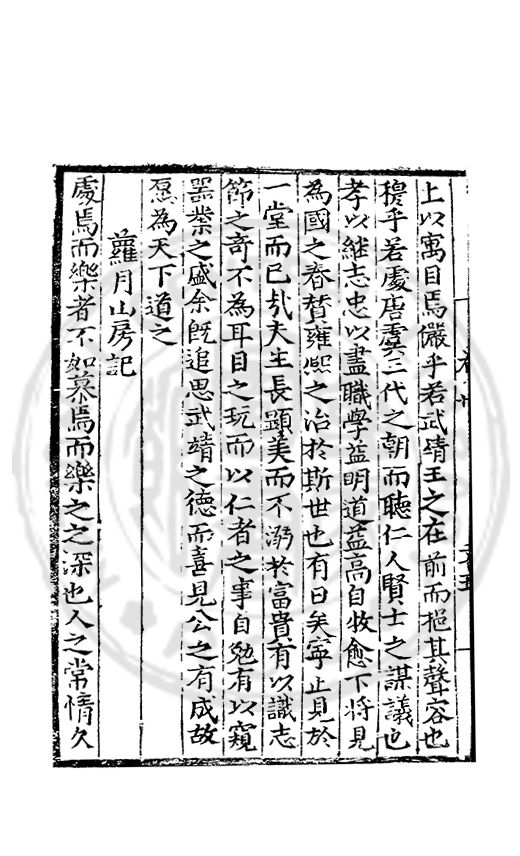 上以寓目焉儼乎若武靖王之在前而挹其聲容也
穆乎若處唐虞三代之朝而聽仁人賢士之謀議也
孝以繼志忠以盡職學益明道益高自牧愈下將見
為國之眷賛雍熙之治於斯世也有日矣寧止見於
一堂而已㢤夫生長顯美而不溺於富貴有以識志
節之竒不為耳目之玩而以仁者之事自勉有以窺
器業之盛余旣追思武靖之德而喜見公之有成故
願為天下道之
蘿月山房記
處焉而樂者不如慕焉而樂之之深也人之常情久